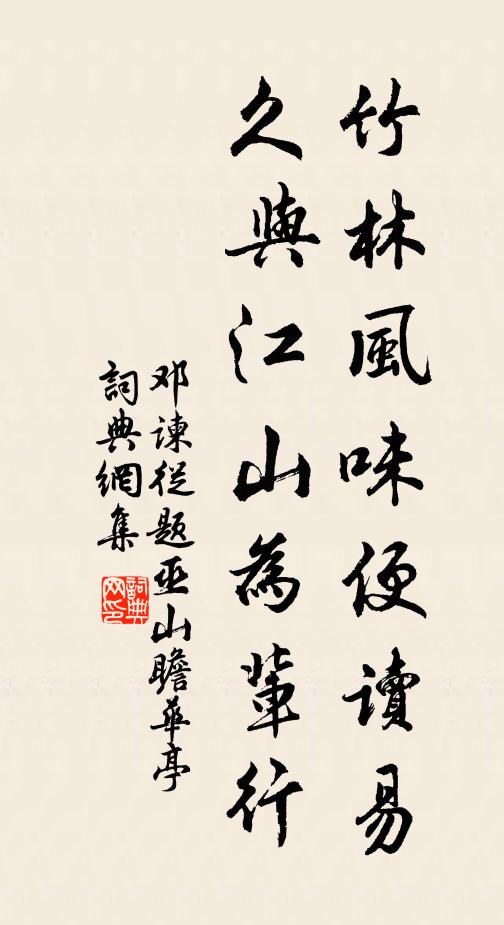 竹林風味便讀易
久與江山為輩行
邓諫從題巫山瞻華亭
詞典網集
詞典网印